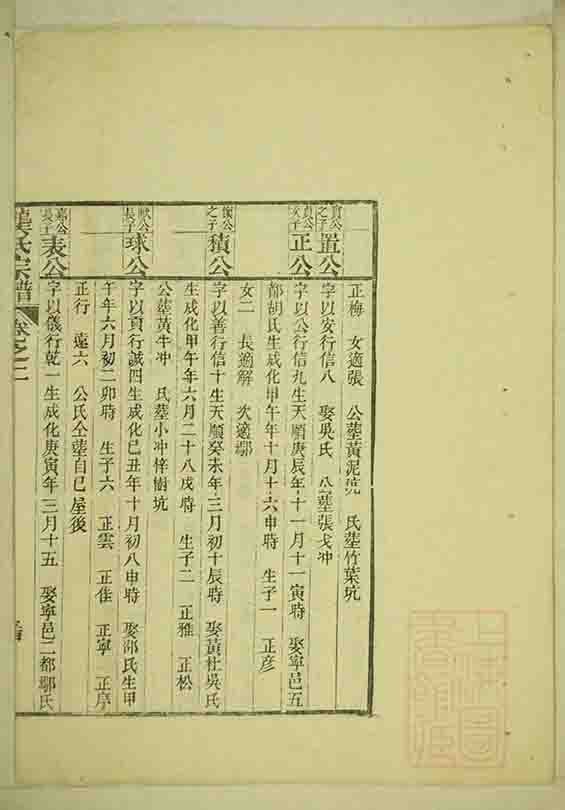 正梅 女適張 公塟黃泥坑 氏塟竹葉坑
置公 字以安行信八 娶吳氏 公塟張戈冲
正公 字以公行信九生天順庚辰年十一月十一寅時 娶寧邑五
都胡氏生成化甲午年十月十六申時 生子一 正彦
女二 長適解 次適鄢
之子
積公 字以善行信十生天順癸未年三月初十辰時 娶黃杜吳氏
生成化甲午年六月二十八戌時 生子二 正雅 正松
公塟黃牛冲 氏塟小冲梓樹坑
長子
球公 字以貢行誠四生成化己丑年十月初八申時 娶邵氏生甲
午年六月初二卯時 生子六 正雲 正佳 正寧 正序
正行 遠六 公氏仝塟自己屋後
長子
表公 字以儀行乾一生成化庚寅年三月十五 娶寧邑二都鄢氏
氏宗譜 卷之二
上海圖書館藏